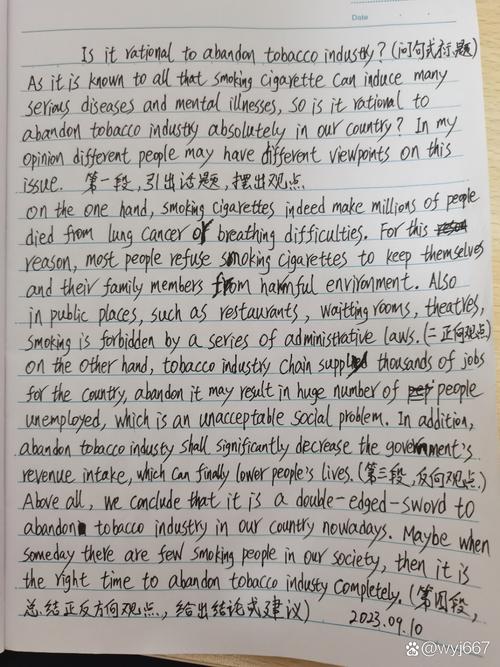 Date
Is it rational to abandon tobacco industry? (问句式标题)
As it is known to all that smoking cigarette can induce many
serious diseases and mental illnesses, so is it rational to
abandon tobacco industry absolutely in our country? In my
opinion different people may have different viewpoints on this
issue. 第一段,引出话题,摆出观点
on the one hand, smoking cigarettes indeed make millions of people
died from lung cancer or breathing difficulties. For this
reason, most people refuse smoking cigarettes to keep themselves
and their family members from harmful environment. Also
in public places, such as restaurants, waitting rooms, theatres,
smoking is forbidden by a series of administrative laws. (二正向观点)
on the other hand, tobacco industry chain supply thousands of jobs
for the country, abandon it may result in huge number of people
unemployed, which is an unacceptable social problem. In addition,
abandon tobacco industy shall significantly decrease the government's
revenue intake, which can finally lower people's lives. (第三段,反向观点.)
Above all, we conclude that it is a double-edged-sword to
abandon tobacco industry in our country nowadays. Maybe when
someday there are few smoking people in our society, then it is
the right time to abandon tobacco industy completely. (第四段,
总结正反方向观点,给出结论或建议) 2023.09.10
@wyj667